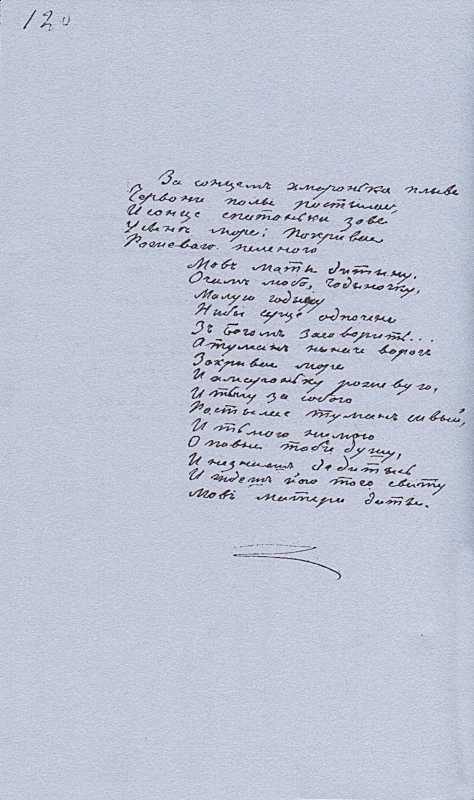 120
За сонцемъ хмаронька плыве
Червони полы розтылае,
И сонце спатоньки зове
У синѣ море: Покривае
Рожеваго пеленою
Мовъ маты дитину.
Очамъ любо, годыночку,
Малую годину
Нибы серце одпочене
Зъ Богомъ заговорить...
А туманъ ныначе ворогъ
Закривае море
И хмароньку рожевую,
И тьму за собою
Розтылае туманъ сивый,
И тьмою нимою
Оповие тоби душу,
И незнаешъ дедитысь
И ждешъ його того свиту
Мовъ матери диты.